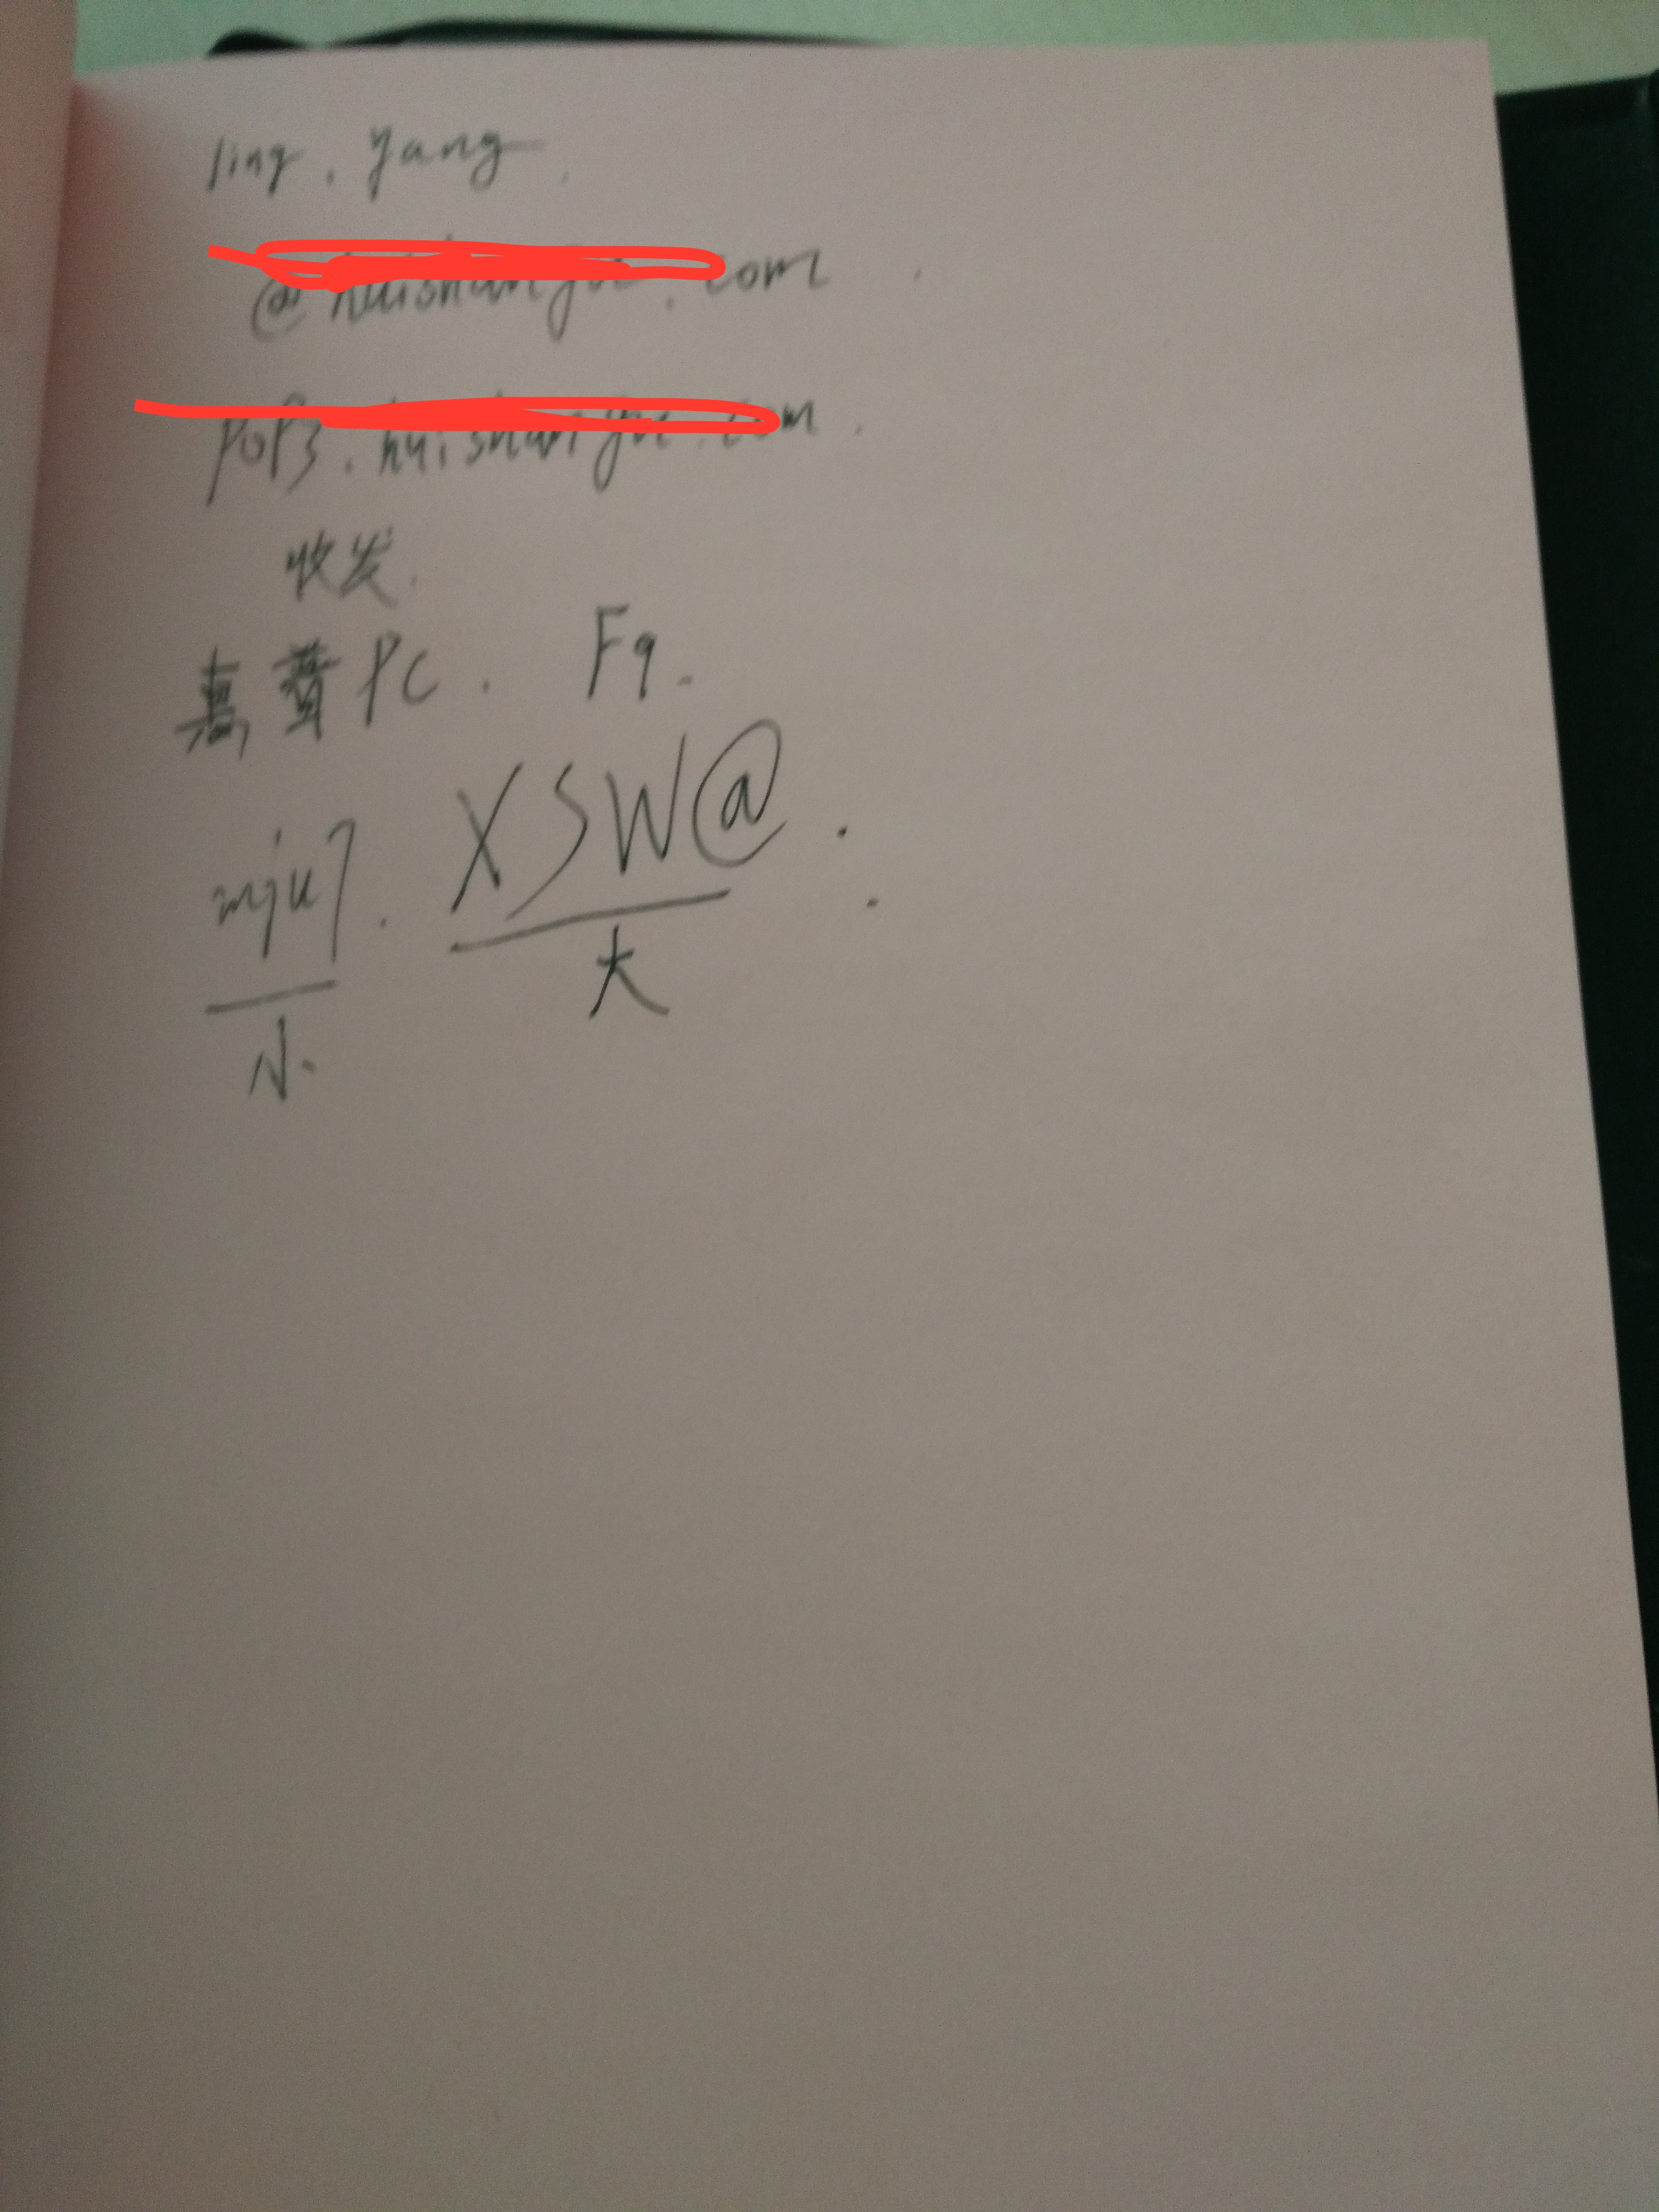 ling.yang.
@ .com
POP3. .com.
收发.
PC. F9.
mju7. XSW@.
小. 大